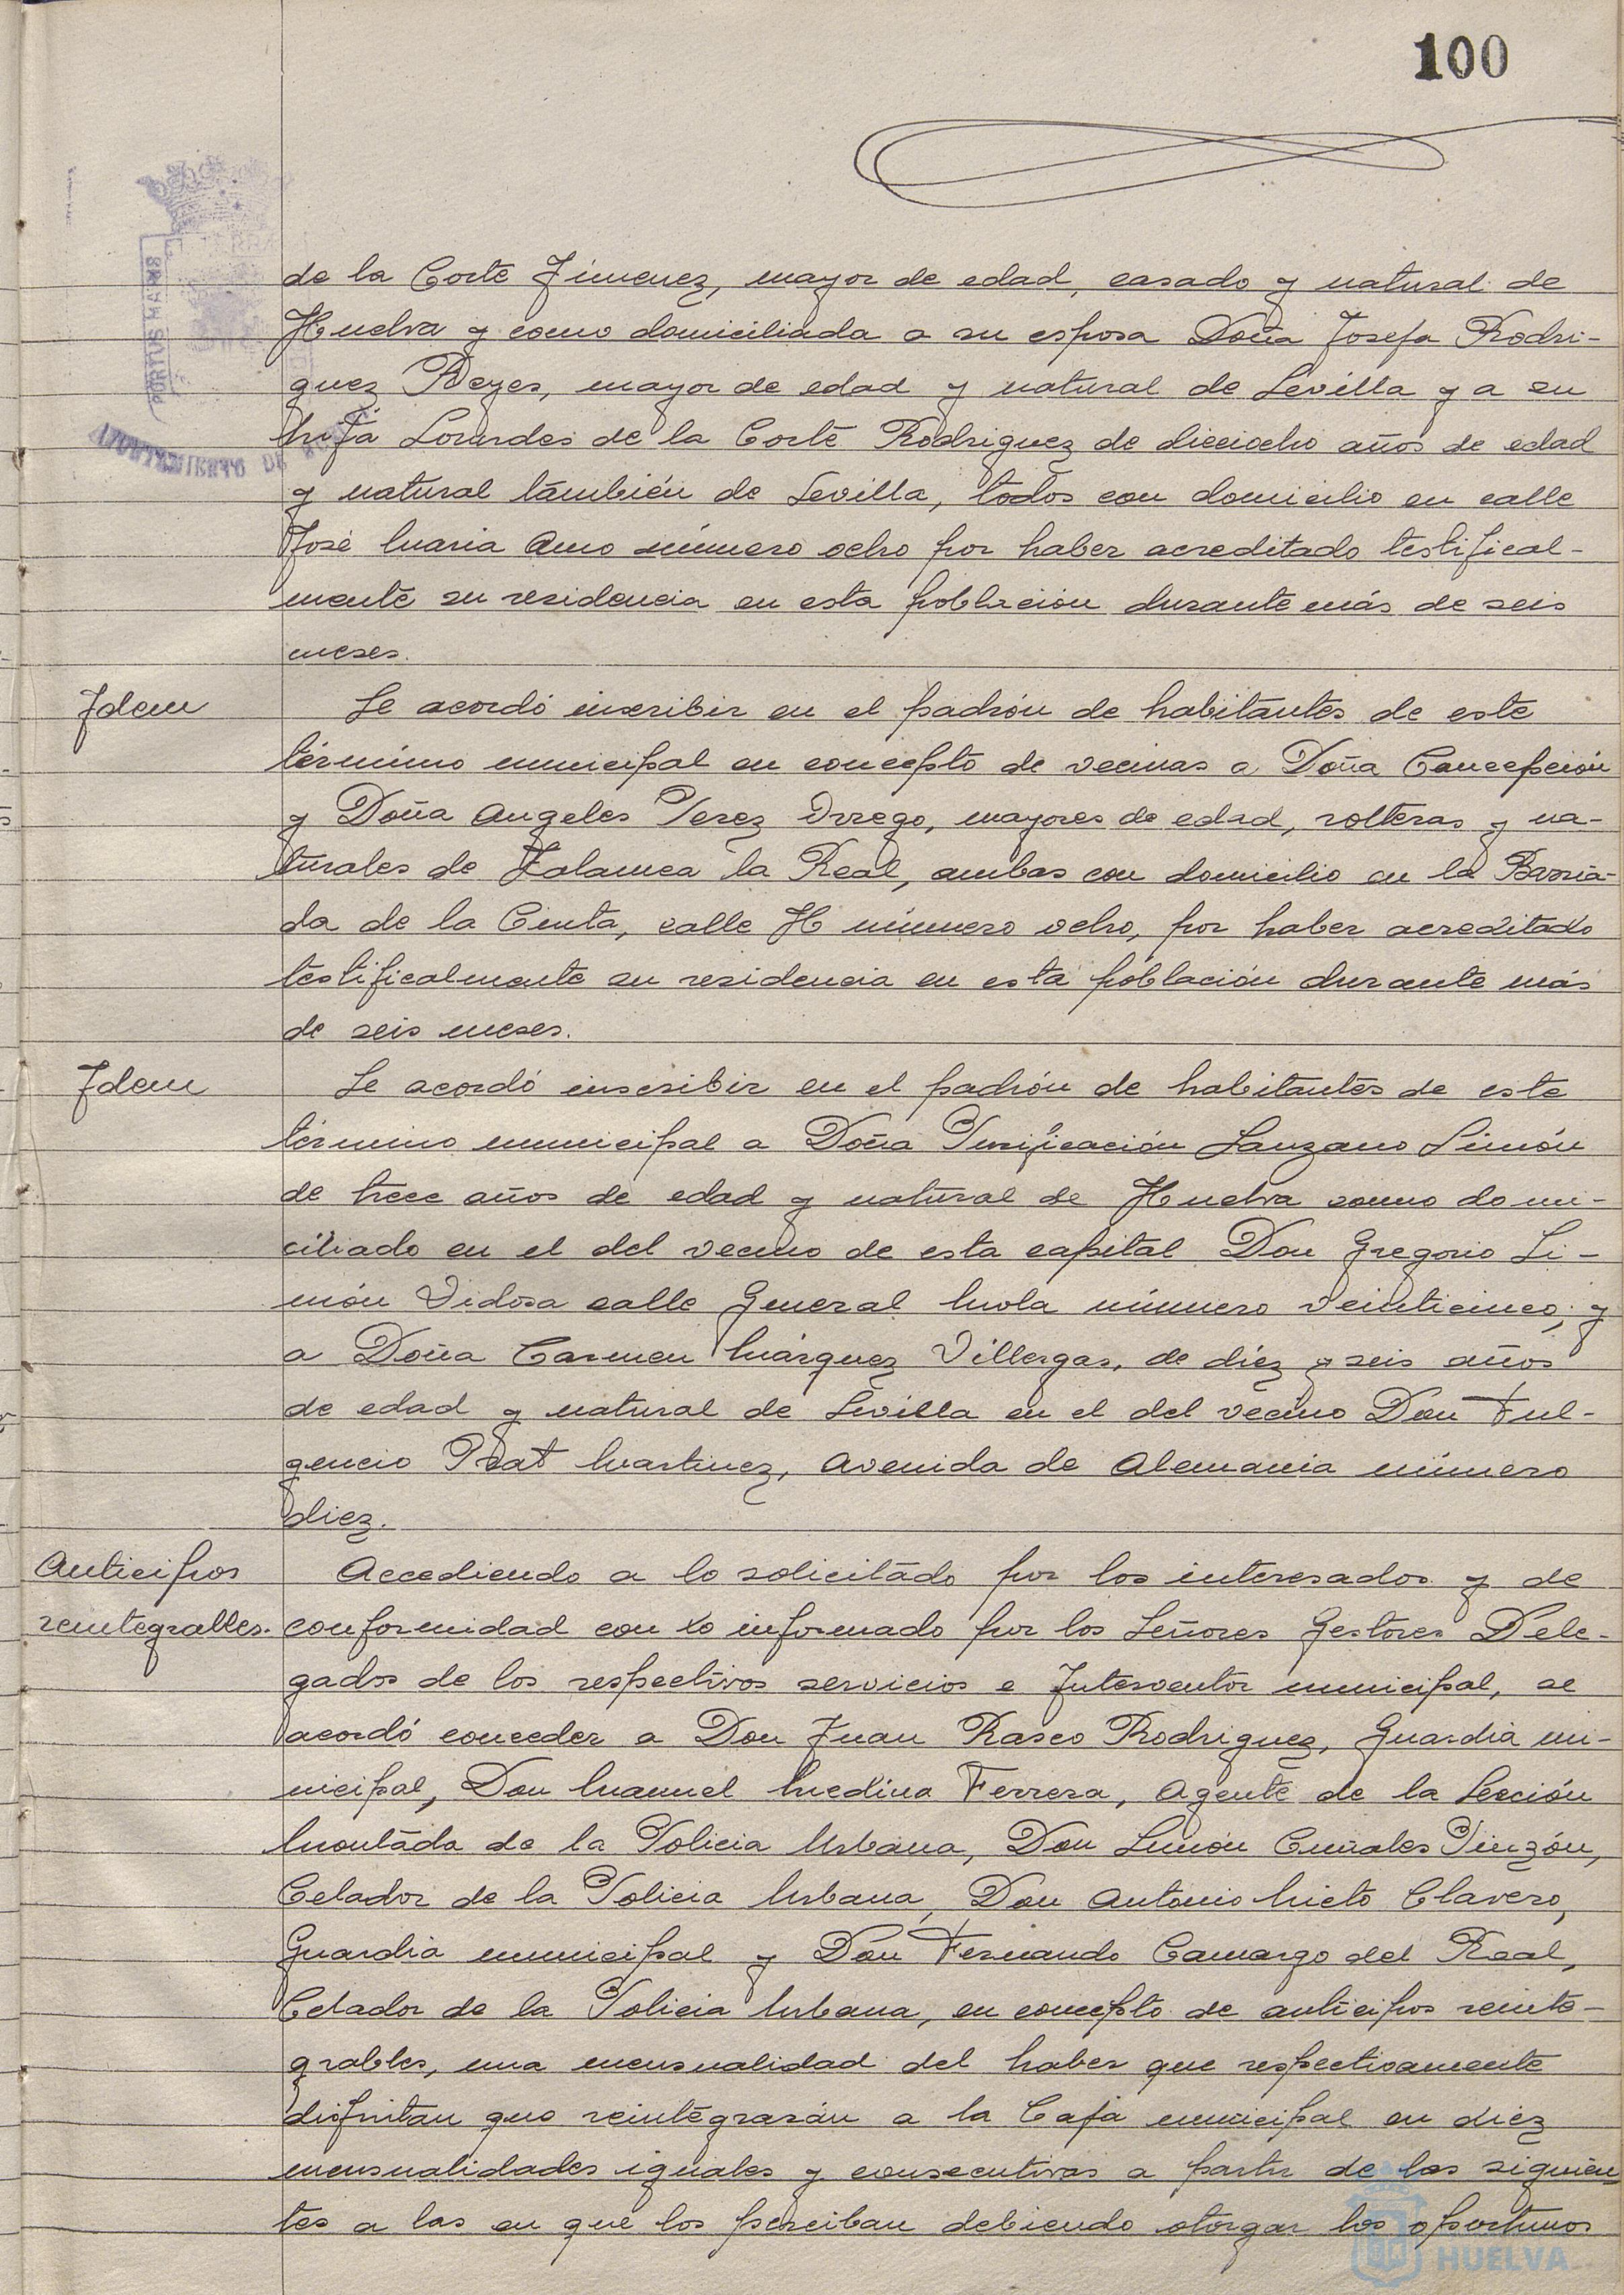 100
PORTUS MARIS
AYUNTAMIENTO DE
de la Corte Jimenez, mayor de edad, casado y natural de
Huelva y como domiciliada a su esposa Doña Josefa Rodri-
guez Reyes, mayor de edad y natural de Sevilla y a su
hija Lourdes de la Corte Rodriguez de dieciocho años de edad
y natural también de Sevilla, todos con domicilio en calle
José Maria Amo número ocho por haber acreditado testifical-
mente su residencia en esta población durante más de seis
meses.
Idem
Se acordó inscribir en el padrón de habitantes de este
término municipal en concepto de vecinas a Doña Concepción
y Doña Angeles Perez Orrego, mayores de edad, solteras y na-
turales de Zalamea la Real, ambas con domicilio en la Barria-
da de la Cinta, calle H número ocho, por haber acreditado
testificalmente su residencia en esta población durante más
de seis meses.
Idem
Se acordó inscribir en el padrón de habitantes de este
término municipal a Doña Purificación Lanzano Simón
de trece años de edad y natural de Huelva como domi-
ciliado en el del vecino de esta capital Don Gregorio Si-
món Vidosa calle General Mola número veinticinco; y
a Doña Carmen Márquez Villergas, de diez y seis años
de edad y natural de Sevilla en el del vecino Don Ful-
gencio Prat Martinez, Avenida de Alemania número
diez.
Anticipos
reintegrables.
Accediendo a lo solicitado por los interesados y de
conformidad con lo informado por los Señores Gestores Dele-
gados de los respectivos servicios e Interventor municipal, se
acordó conceder a Don Juan Rasco Rodriguez, Guardia mu-
nicipal, Don Manuel Medina Ferrera, Agente de la Sección
Montada de la Policia Urbana, Don Simón Pinzón,
Celador de la Policia Urbana, Don Antonio Nieto Clavero,
Guardia municipal y Don Fernando Camargo del Real,
Celador de la Policia Urbana, en concepto de anticipos reinte-
grables, una mensualidad del haber que respectivamente
disfrutan que reintegrarán a la Caja municipal en diez
mensualidades iguales y consecutivas a partir de las siguien-
tes a las en que los perciban debiendo otorgar los oportunos
HUELVA